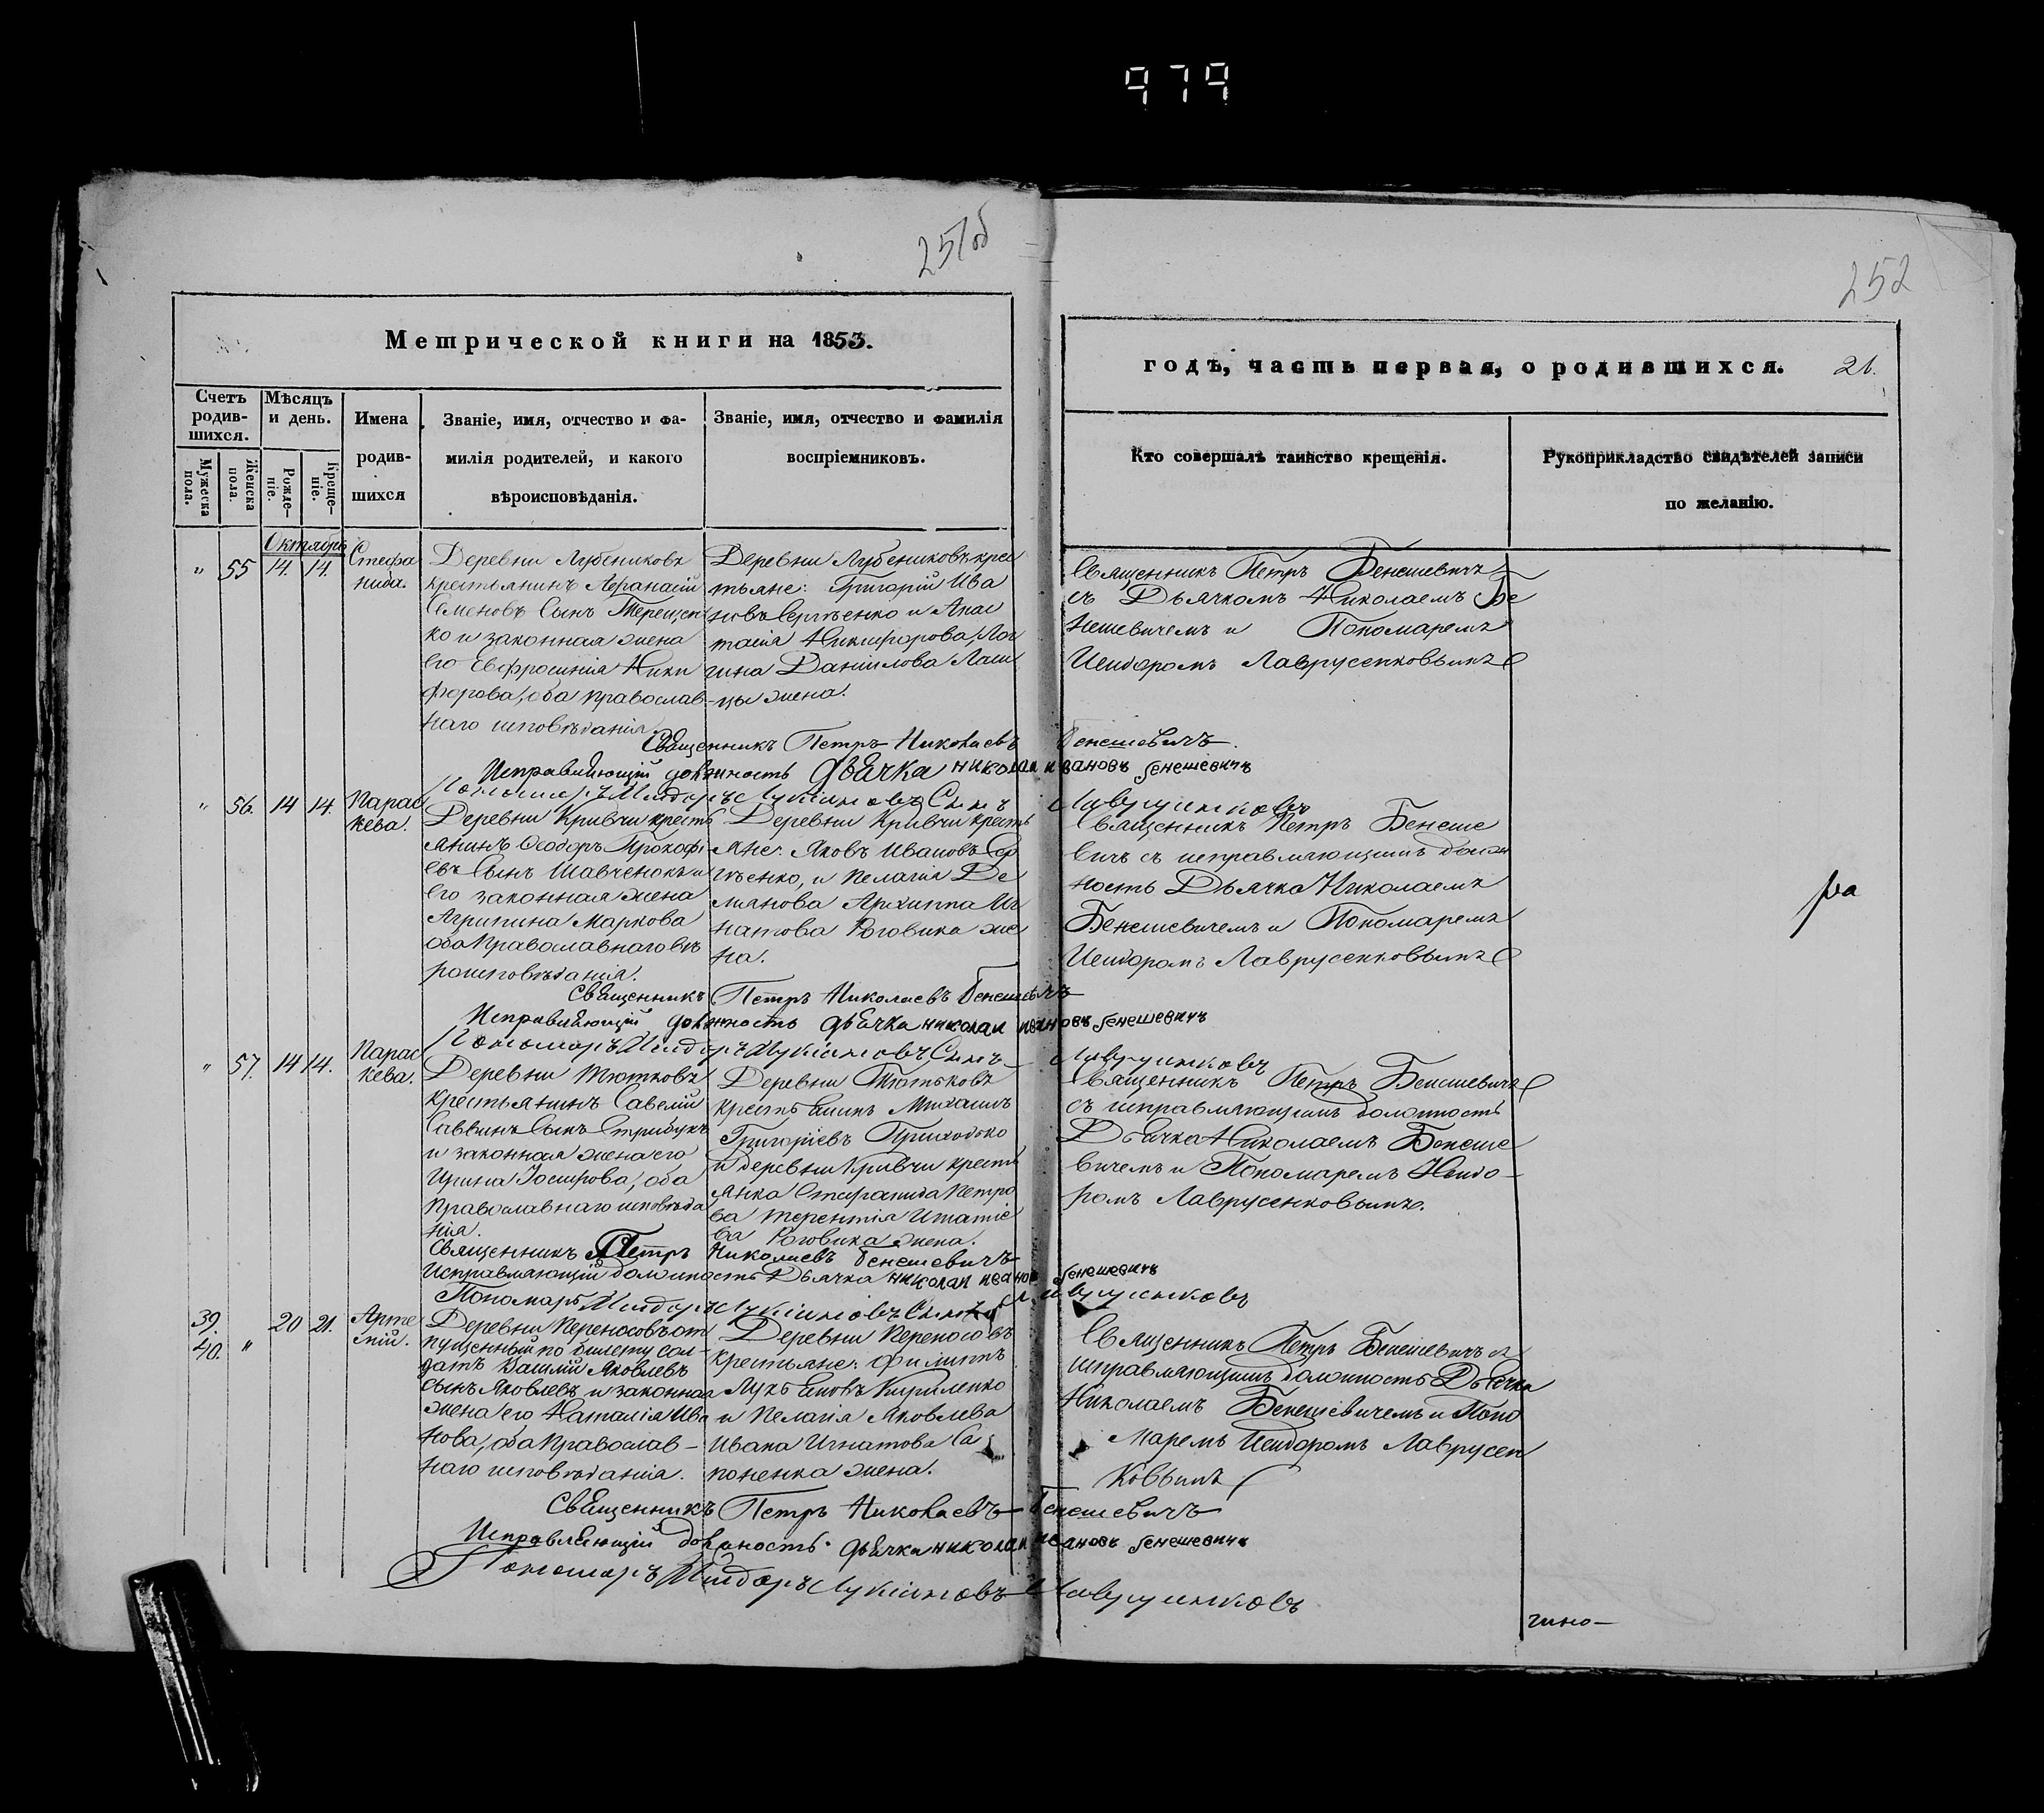 979
251об
252
Метрической книги на 1853.
годъ, часть первая, о родившихся. 21.
Счетъ родив-шихся.
Мѣсяцъ и день.
Имена родив-шихся
Званіе, имя, отчество и фа-
милія родителей, и какого
вѣроисповѣданія.
Званіе, имя, отчество и фамилія
воспріемниковъ.
Мужеска пола.
Женска пола.
Рожде-ніе.
Креще-ніе.
Кто совершалъ таинство крещенія.
Рукоприкладство свидѣтелей записи
по желанію.
Октябрь
" 55 14. 14.
Стефа
нида.
Деревни Лубениковъ
крестьянинъ Афанасій
Семеновъ Сынъ Терещен
ко и законная жена
его Евфросинія Ники
форова, оба православ-
наго исповѣданія.
Деревни Лубениковъ крес
тьяне: Григорій Ива
новъ Сергѣенко и Анас
тасія Никифорова, Лон
гина Даниілова
жена.
Священникъ Петръ Бенешевичъ
съ Дьячкомъ Николаемъ Бе
нешевичемъ и Пономаремъ
Исидоромъ Лаврусенковымъ
Священникъ Петръ Николаевъ Бенешевичъ.
Исправляющій должность дьячка николай ивановъ бенешевичъ
Пономарь Исидоръ Лукіановъ Сынъ Лаврусенковъ
" 56. 14 14.
Парас
кева.
Деревни Кривчи кресть
янинъ Ѳеодоръ Прокофі
евъ Сынъ Шавченокъ и
его законная жена
Агрипина Маркова
оба Православнаго вѣ
роисповѣданія.
Деревни Кривчи кресть
яне: Яковъ Ивановъ Сер
гѣенко, и Пелагія Де
мянова Архиппа Иг
натова Роговика же
на.
Священникъ Петръ Бенеше
вичъ съ исправляющимъ долж
ность Дьячка Николаемъ
Бенешевичемъ и Пономаремъ
Исидоромъ Лаврусенковымъ
ра
Священникъ Петръ Николаевъ Бенешевичъ
Исправляющій должность дьячка николай ивановъ бенешевичъ
Пономарь Исидоръ Лукіановъ Сынъ Лаврусенковъ
" 57. 14 14.
Парас
кева.
Деревни Тютьковъ
крестьянинъ Савелій
Саввинъ Сынъ Стрибукъ
и законная жена его
Ирина Іосифова, оба
Православнаго исповѣда
нія.
Деревни Тютьковъ
крестьянинъ Михаилъ
Григоріевъ Приходько
и деревни Кривчи кресть
янка Стефанида Петро
ва Терентія Игнатіе
ва Роговика жена.
Священникъ Петръ Бенешевичъ
съ исправляющимъ должность
Дьячка Николаемъ Бенеше
вичемъ и Пономаремъ Исидо-
ромъ Лаврусенковымъ.
Священникъ Петръ Николаевъ Бенешевичъ
Исправляющій должность Дьячка николай иванов бенешевичъ
Пономарь Исидоръ Лукіановъ Сынъ Лаврусенковъ
39.
40. " 20 21.
Арте
мій.
Деревни Переносовъ от
пущенный по билету сол-
датъ Василій Яковлевъ
сынъ Яковлевъ и законная
жена его Наталія Ива
нова, оба Православ-
наго исповѣданія.
Деревни Переносовъ
крестьяне: Филиппъ
Лукьяновъ Кириленко
и Пелагія Яковлева
Ивана Игнатова Са
поненка жена.
Священникъ Петръ Бенешевичъ съ
исправляющимъ должность Дьячка
Николаемъ Бенешевичемъ и Поно
маремъ Исидоромъ Лаврусен
ковымъ
Священникъ Петръ Николаевъ Бенешевичъ
Исправляющій должность дьячка николай ивановъ бенешевичъ
Пономарь Исидоръ Лукіановъ Лаврусенковъ
чино-